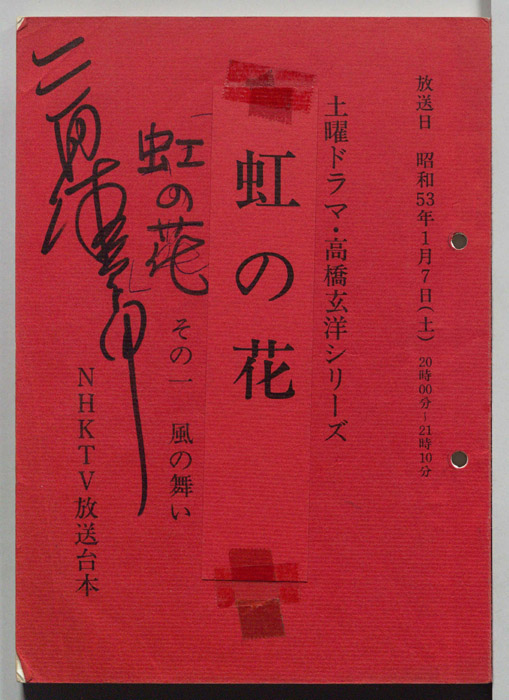 放送日 昭和53年1月7日(土) 20時00分~21時10分
土曜ドラマ・高橋玄洋シリーズ
虹の花
その一 風の舞い
「虹の花」
NHKTV放送台本